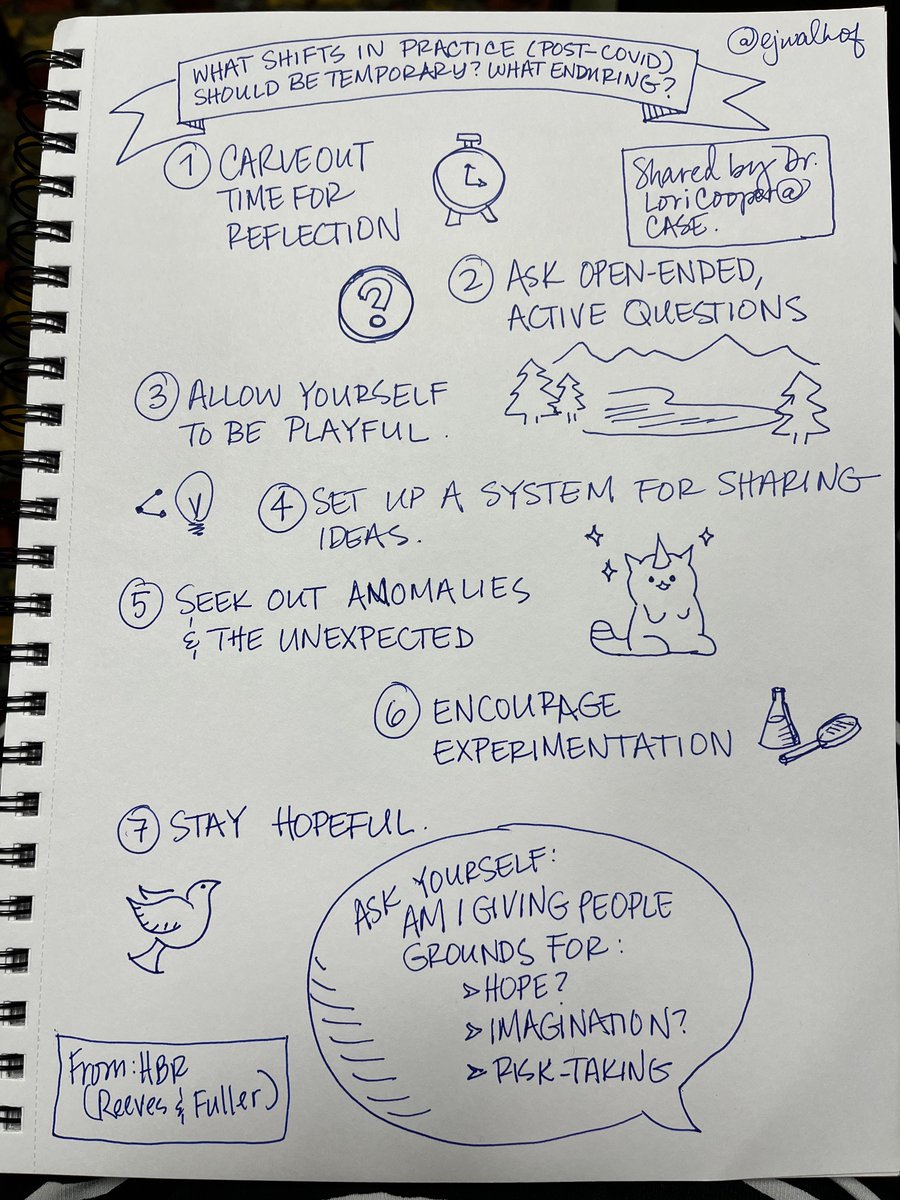 @ejwalhof
WHAT SHIFTS IN PRACTICE (POST-COVID)
SHOULD BE TEMPORARY? WHAT ENDURING?
1 CARVE OUT
TIME FOR
REFLECTION
Shared by Dr.
Lori Cooper @
CASE.
2 ASK OPEN-ENDED,
ACTIVE QUESTIONS
?
3 ALLOW YOURSELF
TO BE PLAYFUL.
4 SET UP A SYSTEM FOR SHARING
IDEAS.
5 SEEK OUT ANOMALIES
& THE UNEXPECTED
6 ENCOURAGE
EXPERIMENTATION
7 STAY HOPEFUL.
ASK YOURSELF:
AM I GIVING PEOPLE
GROUNDS FOR:
➢ HOPE?
➢ IMAGINATION?
➢ RISK-TAKING
From: HBR
(Reeves & Fuller)